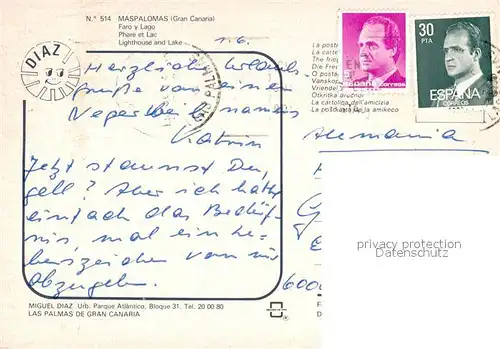 N.° 514 MASPALOMAS (Gran Canaria)
Faro y Lago
Phare et Lac
Lighthouse and Lake
1.6.
DIAZ
Herzliche Urlaubs-
grüße von einem
namens
Katrin
Jetzt staunst Du,
gell? Aber ich hatte
einfach das Bedürf-
nis, mal ein Le-
benszeichen von mir
abzugeben.
La posta
La carte
The frie
Die Fre
O posta
Vansko
Vriende
Otkritka
La cartolina dell'amicizia
amikeco
ESPAÑA
CORREOS
30
PTA
ESPAÑA
CORREOS
Alemania
6000
privacy protection
Datenschutz
MIGUEL DIAZ Urb. Parque Atlántico, Bloque 31. Tel. 20 00 80
LAS PALMAS DE GRAN CANARIA